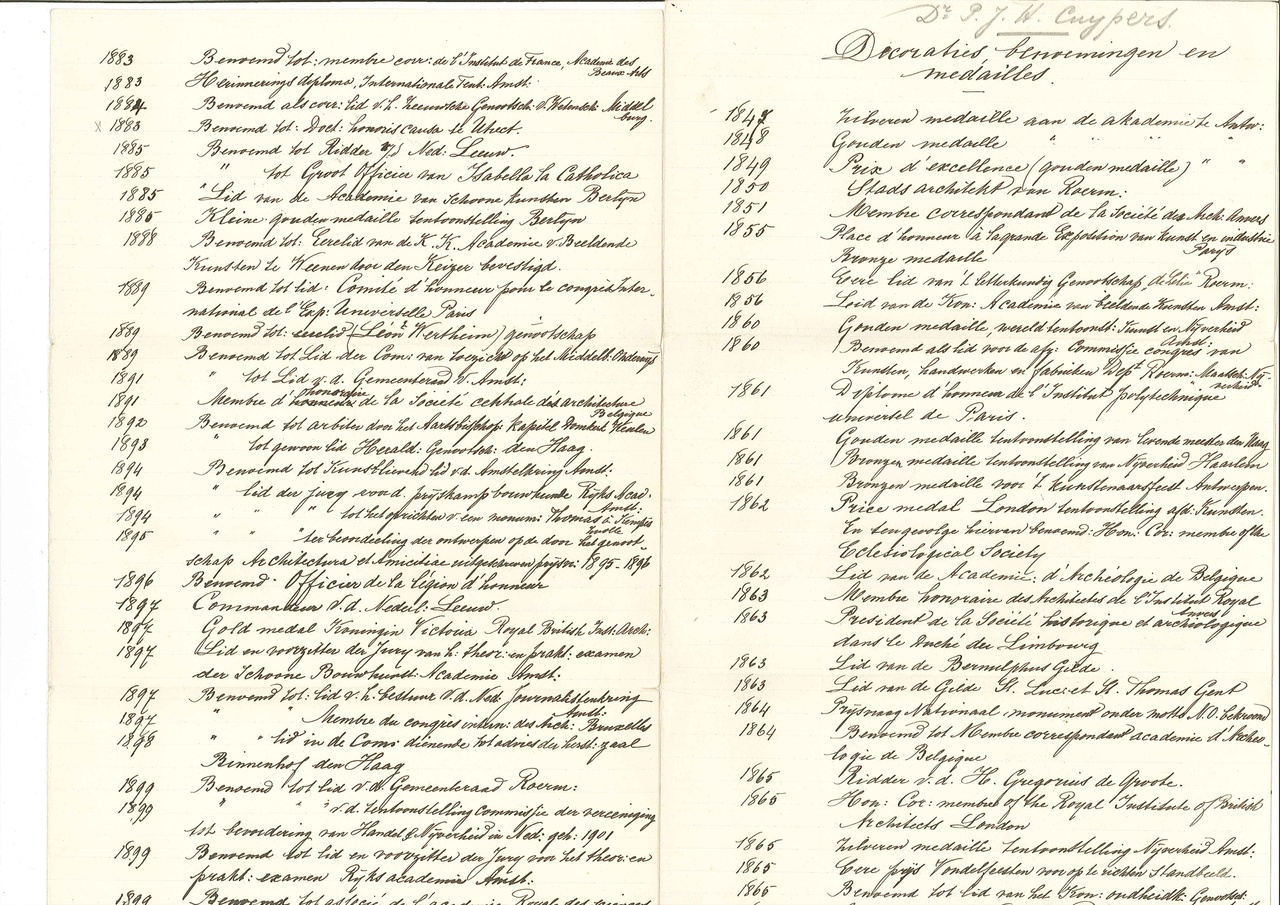 Dr. P. J. H. Cuypers.
Decoraties, benoemingen en
medailles.
1847 Zilveren medaille aan de akademie te Antw:
1848 Gouden medaille " " " "
1849 Prix d'excellence (gouden medaille) " "
1850 Stads architekt van Roerm:
1851 Membre correspondant de la Société des Arch: Anvers
1855 Place d'honneur à la grande Exposition van kunst en industrie
Parijs
Bronze medaille
1856 Eere lid van 't letterkundig Genootschap, Roerm:
1856 Lid van de Kon: Academie van beeldende Kunsten Amst:
1860 Gouden medaille, wereld tentoonst: Kunst en Nijverheid
Amst:
1860 Benoemd als lid voor de afg: Commissie congres van
Kunsten, handwerken en fabrieken Dept Roerm: Maatsch: Nij-
verheid
1861 Diplome d'honneur de l'Institut polytechnique
universel de Paris.
1861 Gouden medaille tentoonstelling van levende meester den Haag
1861 Bronzen medaille tentoonstelling van Nijverheid Haarlem
1861 Bronzen medaille voor 't Kunstenaarsfeest Antwerpen.
1862 Price medal London tentoonstelling afd: Kunsten.
En tengevolge hiervan benoemd: Hon: Cor: member of the
Eclesiological Society
1862 Lid van de Academie: d'Archéologie de Belgique
1863 Membre honoraire des Architectes de l'Institut Royal
Anvers
1863 President de la Société historique et archéologique
dans le Duché de Limbourg
1863 Lid van de Bernulphus Gilde.
1863 Lid van de Gilde St. Luc: et St. Thomas Gent
1864 Prijsvraag Nationaal monument onder motto N.O. bekroond
1864 Benoemd tot Membre correspondant academie d'Archeo-
logie de Belgique
1865 Ridder v.d. H. Gregorius de Groote.
1865 Hon: Cor: member of the Royal Institute of British
Architects London
1865 Zilveren medaille tentoonstelling Nijverheid Amst:
1865 Eere prijs Vondelfeesten voor op te richten Standbeeld.
1865 Benoemd tot lid van het Kon: oudheidk: Genootsch:
1883 Benoemd tot: membre corr: de l'Institut de France, Academie des
Beaux-Arts
1883 Herinnerings diploma, Internationale Tent: Amst:
1884 Benoemd als corr: lid v.h. Zeeuwsche Genootsch: v. Wetensch: Middel
burg.
x 1883 Benoemd tot: Doct: honoris causa te Utrecht.
1885 Benoemd tot Ridder v/d Ned: Leeuw.
1885 " tot Groot Officier van Isabella la Catholica
1885 " Lid van de Academie van Schoone Kunsten Berlijn
1886 Kleine gouden medaille tentoonstelling Berlijn
1888 Benoemd tot: Eerelid van de K. K. Academie v. Beeldende
Kunsten te Weenen door den Keizer bevestigd.
1889 Benoemd tot lid: Comité d'honneur pour le congrès Inter-
national de l'Exp: Universelle Paris
1889 Benoemd tot: eerelid (Léon Wertheim) genootschap
1889 Benoemd tot Lid der Com: van toezicht op het Middelb: Onderwijs
1891 " tot Lid v.d. Gemeenteraad v. Amst:
1891 Membre d'honoraire de la Société centrale des architecture
Belgique
1892 Benoemd tot arbiter door het Aartsbisschop: Kapitel Domkerk Keulen
1893 " tot gewoon lid Herald: Genootsch: den Haag.
1894 Benoemd tot Kunstlievend lid v.d. Amstelkring Amst:
1894 " lid der jury voor d. prijskamp bouwkunde Rijks Acad.
Amst:
1894 " " " tot het oprichten v. een monum: Thomas à Kempis
Zwolle
1895 " " " ter beoordeeling der ontwerpen op de door het genoot-
schap Architectura et Amicitiae uitgeschreven prijsvr: 1895-1896
1896 Benoemd Officier de la légion d'honneur
1897 Commandeur v.d. Nederl: Leeuw.
1897 Gold medal Koningin Victoria Royal British Inst: Arch:
1897 Lid en voorzitter der Jury van h: theor: en prakt: examen
der Schoone Bouwkunst Academie Amst:
1897 Benoemd tot: lid v.h. bestuur v.d. Ned Journalistenkring
Amst:
1897 " " Membre du congres intern: des Arch: Bruxelles
1898 " " lid in de Com: dienende tot advies der herst: zaal
Binnenhof den Haag
1899 Benoemd tot lid v.d. Gemeenteraad Roerm:
1899 " " " v.d. tentoonstelling Commissie der vereeniging
tot bevordering van Handel & Nijverheid in Ned: geh: 1901
1899 Benoemd tot lid en voorzitter der Jury voor het theor: en
prakt: examen Rijks academie Amst:
1899 Benoemd tot associé de l'academie Royale des sciences